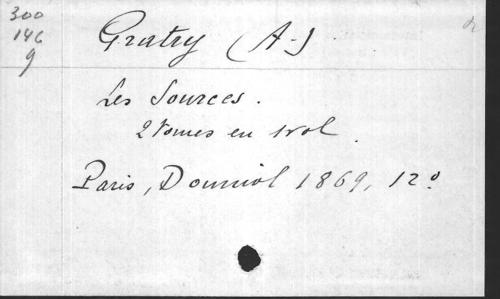 300
146
g
Gratry (A-)
Les Sources.
2 tomes en 1 vol.
Paris, Douniol 1869, 12°